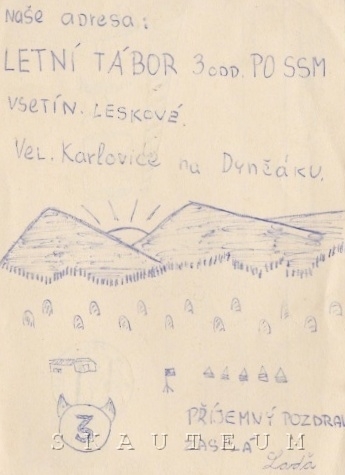 Naše adresa:
LETNÍ TÁBOR 3 ODD. PO SSM
VSETÍN. LESKOVÉ.
Vel. Karlovice na Dynčáku.
3
PŘÍJEMNÝ POZDRAV
ZASÍLÁ
SKAUTEUM
Laďa